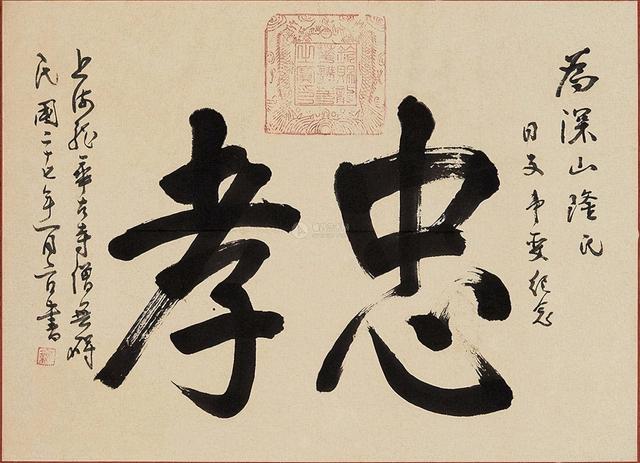 為深山隆氏
日支事变紀念
忠孝
上海龍華古寺僧無碍
民國二十七年一月六日書